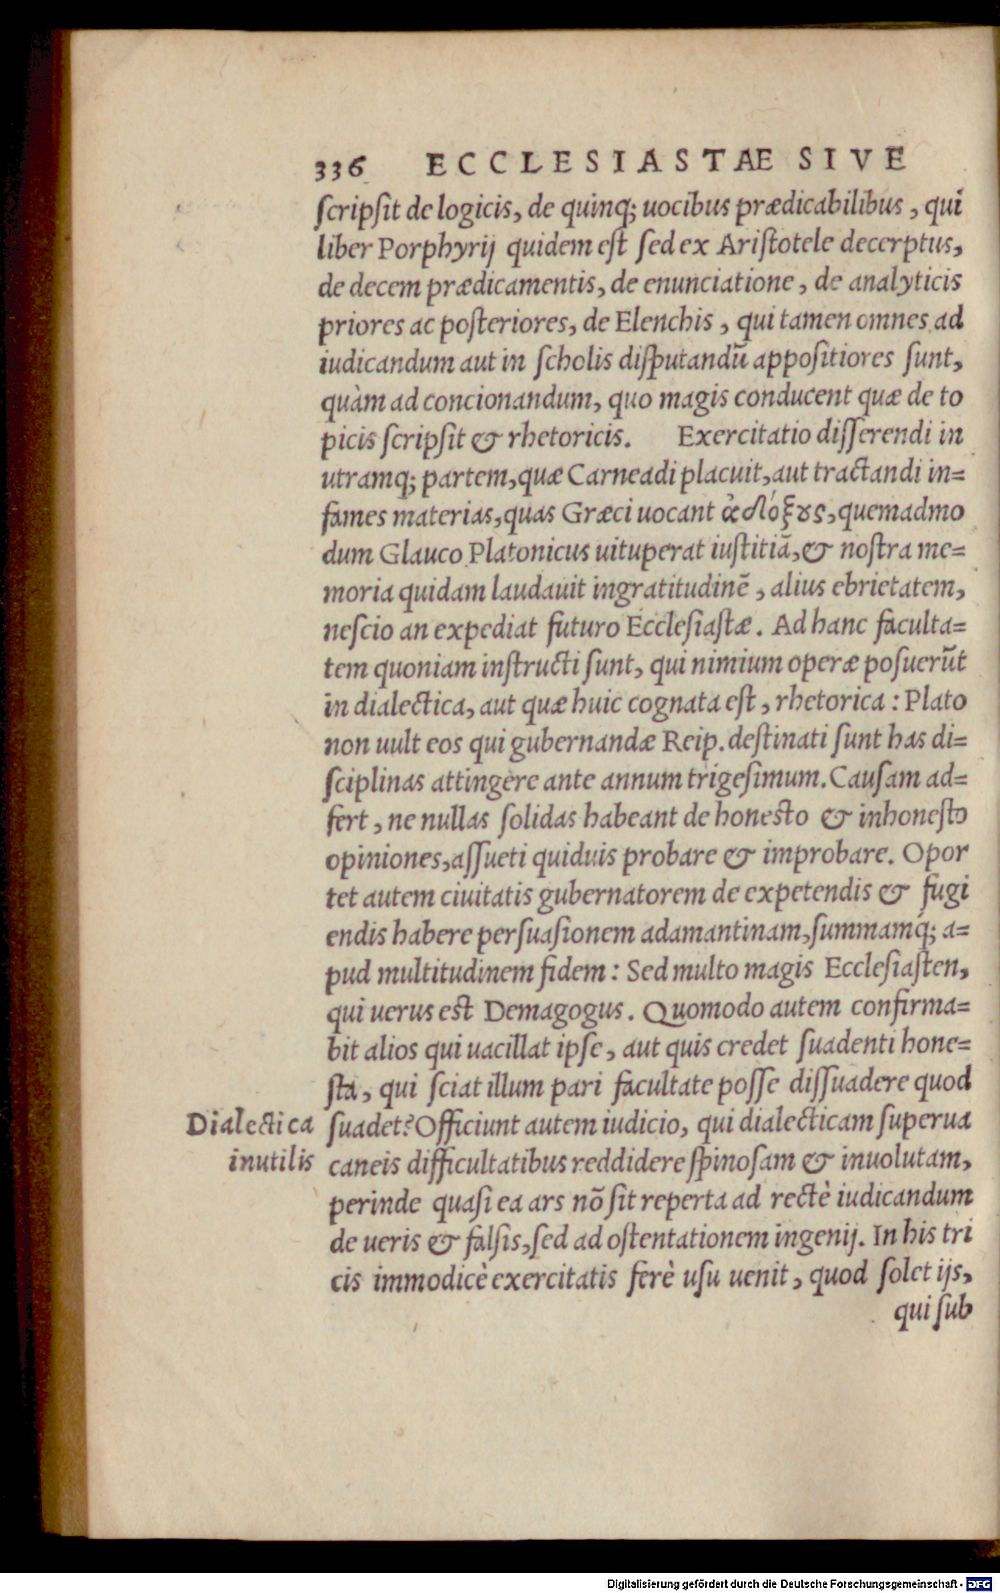 336 ECCLESIASTAE SIVE
ſcripſit de logicis, de quinq; uocibus prædicabilibus, qui
liber Porphyrij quidem eſt ſed ex Ariſtotele decerptus,
de decem prædicamentis, de enunciatione, de analyticis
priores ac poſteriores, de Elenchis, qui tamen omnes ad
iudicandum aut in ſcholis diſputandū appoſitiores ſunt,
quàm ad concionandum, quo magis conducent quæ de to
picis ſcripſit & rhetoricis. Exercitatio diſſerendi in
utramq; partem, quæ Carneadi placuit, aut tractandi in=
fames materias, quas Græci uocant ἀδόξους, quemadmo
dum Glauco Platonicus uituperat iuſtitiā, & noſtra me=
moria quidam laudauit ingratitudinē, alius ebrietatem,
neſcio an expediat futuro Eccleſiaſtæ. Ad hanc faculta=
tem quoniam inſtructi ſunt, qui nimium operæ poſuerūt
in dialectica, aut quæ huic cognata eſt, rhetorica: Plato
non uult eos qui gubernandæ Reip. deſtinati ſunt has di=
ſciplinas attingere ante annum trigeſimum. Cauſam ad=
fert, ne nullas ſolidas habeant de honesto & inhoneſto
opiniones, aſſueti quiduis probare & improbare. Opor
tet autem ciuitatis gubernatorem de expetendis & fugi
endis habere perſuaſionem adamantinam, ſummamq́; a=
pud multitudinem fidem: Sed multo magis Eccleſiaſten,
qui uerus est Demagogus. Quomodo autem confirma=
bit alios qui uacillat ipſe, aut quis credet ſuadenti hone=
ſta, qui ſciat illum pari facultate poſſe diſſuadere quod
Dialectica inutilis
ſuadet? Officiunt autem iudicio, qui dialecticam ſuperua
caneis difficultatibus reddidere ſpinoſam & inuolutam,
perinde quaſi ea ars nō ſit reperta ad rectè iudicandum
de ueris & falſis, ſed ad oſtentationem ingenij. In his tri
cis immodicè exercitatis ferè uſu uenit, quod ſolet ijs,
qui ſub
Digitalisierung gefördert durch die Deutsche Forschungsgemeinschaft - DFG